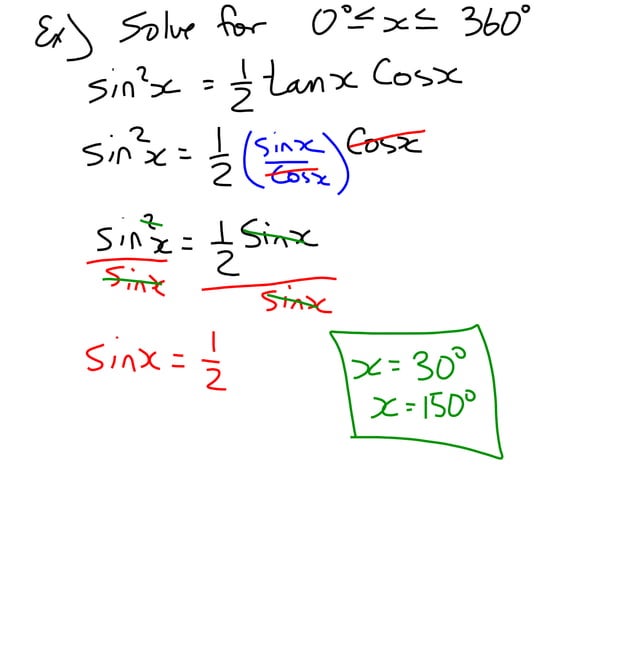 Ex) Solve for 0°≤x≤ 360°
sin²x = 1/2 tanx Cosx
sin²x = 1/2 (sinx/Cosx) Cosx
sin²x/sinx = 1/2 sinx/sinx
sinx = 1/2
x = 30°
x = 150°